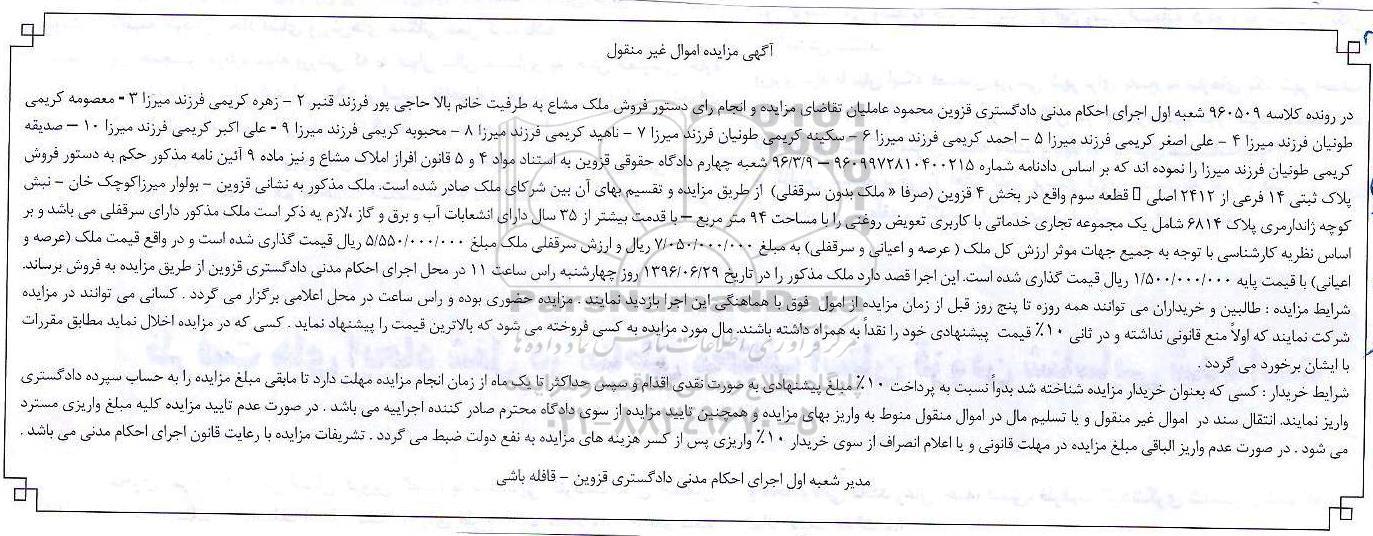 آگهی مزایده اموال غیر منقول
در رونده کلاسه ۹۶۰۵۰۹ شعبه اول اجرای احکام مدنی دادگستری قزوین محمود عاملیان تقاضای مزایده و انجام رای دستور فروش ملک مشاع به طرفیت خانم بالا حاجی پور فرزند قنبر ۲ – زهره کریمی فرزند میرزا ۳ - معصومه کریمی
طونیان فرزند میرزا ۴ – علی اصغر کریمی فرزند میرزا ۵ – احمد کریمی فرزند میرزا ۶ – سکینه کریمی طونیان فرزند میرزا ۷ – ناهید کریمی فرزند میرزا ۸ – محبوبه کریمی فرزند میرزا ۹ - علی اکبر کریمی فرزند میرزا ۱۰ – صدیقه
کریمی طونیان فرزند میرزا را نموده اند که بر اساس دادنامه شماره ۹۶۰۹۹۷۲۸۱۰۴۰۰۲۱۵ – ۹۶/۳/۹ شعبه چهارم دادگاه حقوقی قزوین به استناد مواد ۴ و ۵ قانون افراز املاک مشاع و نیز ماده ۹ آئین نامه مذکور حکم به دستور فروش
پلاک ثبتی ۱۴ فرعی از ۲۴۱۲ اصلی قطعه سوم واقع در بخش ۴ قزوین (صرفا « ملک بدون سرقفلی) از طریق مزایده و تقسیم بهای آن بین شرکای ملک صادر شده است. ملک مذکور به نشانی قزوین – بولوار میرزاکوچک خان – نبش
کوچه ژاندارمری پلاک ۶۸۱۴ شامل یک مجموعه تجاری خدماتی با کاربری تعویض روغنی را با مساحت ۹۴ متر مربع – با قدمت بیشتر از ۳۵ سال دارای انشعابات آب و برق و گاز .لازم به ذکر است ملک مذکور دارای سرقفلی می باشد و بر
اساس نظریه کارشناسی با توجه به جمیع جهات موثر ارزش کل ملک ( عرصه و اعیانی و سرقفلی) به مبلغ ۷/۰۵۰/۰۰۰/۰۰۰ ریال و ارزش سرقفلی ملک مبلغ ۵/۵۵۰/۰۰۰/۰۰۰ ریال قیمت گذاری شده است و در واقع قیمت ملک (عرصه و
اعیانی) با قیمت پایه ۱/۵۰۰/۰۰۰/۰۰۰ ریال قیمت گذاری شده است. این اجرا قصد دارد ملک مذکور را در تاریخ ۱۳۹۶/۰۶/۲۹ روز چهارشنبه راس ساعت ۱۱ در محل اجرای احکام مدنی دادگستری قزوین از طریق مزایده به فروش برساند.
شرایط مزایده : طالبین و خریداران می توانند همه روزه تا پنج روز قبل از زمان مزایده از اموال فوق با هماهنگی این اجرا بازدید نمایند . مزایده حضوری بوده و راس ساعت در محل اعلامی برگزار می گردد . کسانی می توانند در مزایده
شرکت نمایند که اولاً منع قانونی نداشته و در ثانی ۱۰٪ قیمت پیشنهادی خود را نقداً به همراه داشته باشند. مال مورد مزایده به کسی فروخته می شود که بالاترین قیمت را پیشنهاد نماید . کسی که در مزایده اخلال نماید مطابق مقررات
با ایشان برخورد می گردد .
شرایط خریدار : کسی که بعنوان خریدار مزایده شناخته شد بدواً نسبت به پرداخت ۱۰٪ مبلغ پیشنهادی به صورت نقدی اقدام و سپس حداکثر تا یک ماه از زمان انجام مزایده مهلت دارد تا مابقی مبلغ مزایده را به حساب سپرده دادگستری
واریز نمایند. انتقال سند در اموال غیر منقول و یا تسلیم مال در اموال منقول منوط به واریز بهای مزایده و همچنین تایید مزایده از سوی دادگاه محترم صادر کننده اجراییه می باشد . در صورت عدم تایید مزایده کلیه مبلغ واریزی مسترد
می شود . در صورت عدم واریز الباقی مبلغ مزایده در مهلت قانونی و یا اعلام انصراف از سوی خریدار ۱۰٪ واریزی پس از کسر هزینه های مزایده به نفع دولت ضبط می گردد . تشریفات مزایده با رعایت قانون اجرای احکام مدنی می باشد .
مدیر شعبه اول اجرای احکام مدنی دادگستری قزوین – قافله باشی